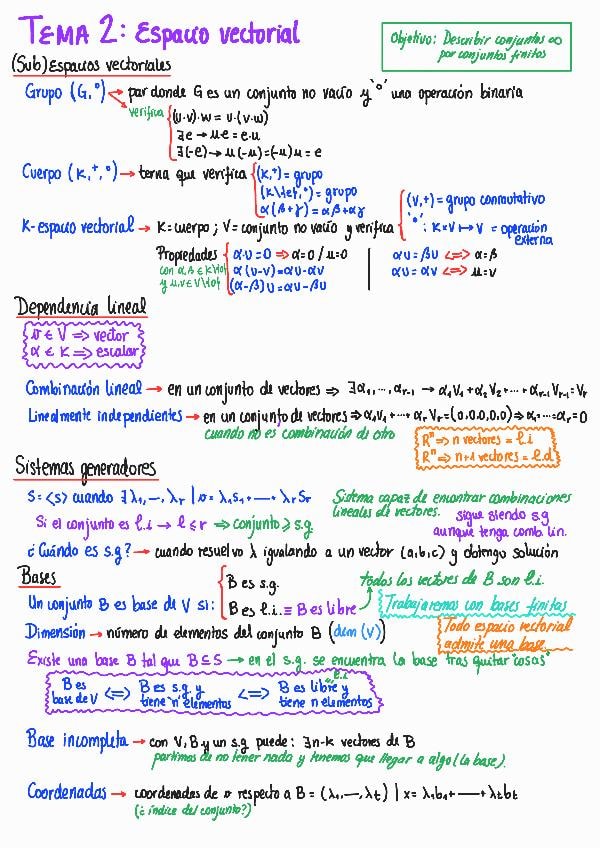 TEMA 2: Espacio vectorial
Objetivo: Describir conjuntos ∞
por conjuntos finitos
(Sub)Espacios vectoriales
Grupo (G,°) → par donde G es un conjunto no vacío y "°" una operación binaria
verifica (u·v)·w = u·(v·w)
∃e → u·e = e·u
∃(-e) → u(-u) = (-u)u = e
Cuerpo (K,+,°) → terna que verifica (K,+) = grupo
(K\{e},°) = grupo
α(β+γ) = αβ+αγ
K-espacio vectorial → K = cuerpo ; V = conjunto no vacío y verifica (V,+) = grupo conmutativo
"°": K×V ↦ V = operación
externa
Propiedades
con α,β ∈ K\{0}
y u,v ∈ V\{0}
α·u = 0 ⇒ α=0 / u=0
α(u-v) = αu-αv
(α-β)u = αu-βu
αu = βu ⇔ α=β
αu = αv ⇔ u=v
Dependencia lineal
v ∈ V ⇒ vector
α ∈ K ⇒ escalar
Combinación lineal → en un conjunto de vectores ⇒ ∃α₁,...,αᵣ₋₁ → α₁V₁+α₂V₂+...+αᵣ₋₁Vᵣ₋₁=Vᵣ
Linealmente independientes → en un conjunto de vectores ⇒ α₁V₁+...+αᵣVᵣ=(0,0,0,0) ⇒ α₁=...=αᵣ=0
cuando no es combinación de otro
Rⁿ ⇒ n vectores = l.i
Rⁿ ⇒ n+1 vectores = l.d
Sistemas generadores
S = <s> cuando ∃ λ₁,...,λᵣ | v = λ₁s₁+...+λᵣSᵣ
Sistema capaz de encontrar combinaciones
lineales de vectores.
sigue siendo s.g
aunque tenga comb. lin.
Si el conjunto es l.i → l ≤ r ⇒ conjunto ⩾ s.g
¿Cuándo es s.g? → cuando resuelvo λ igualando a un vector (a,b,c) y obtengo solución
Bases
Un conjunto B es base de V si:
B es s.g.
B es l.i. ≡ B es libre
todos los vectores de B son l.i.
Trabajaremos con bases finitas
Dimensión → número de elementos del conjunto B (dem (V))
Todo espacio vectorial
admite una base.
Existe una base B tal que B ⊆ S → en el s.g. se encuentra la base tras quitar "cosas"
B es
base de V ⇔ B es s.g. y
tiene "n" elementos ⇔ B es libre y
tiene n elementos
l.i
Base incompleta → con V, B y un s.g puede: ∃ n-k vectores de B
partimos de no tener nada y tenemos que llegar a algo (la base).
Coordenadas → coordenadas de v respecto a B = (λ₁,...,λt) | x = λ₁b₁+...+λtbt
(¿índice del conjunto?)